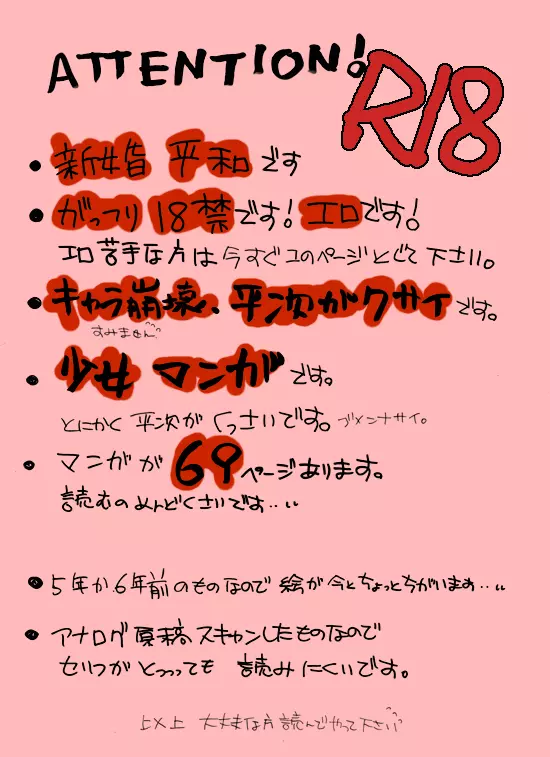 ATTENTION!
R18
• 新婚 平和です
• がっつり 18禁です! エロです!
エロ苦手な方は今すぐこのページとじて下さい。
• キャラ崩壊、平次がクサイです。
すみません
• 少女マンガです。
とにかく平次がくっさいです。ゴメンナサイ。
• マンガが69ページあります。
読むのめんどくさいです…
• 5年か6年前のものなので絵が今とちょっとちがいます…
• アナログ原稿スキャンしたものなので
セリフがとっっっても 読みにくいです。
以上 大丈夫な方読んでやって下さい